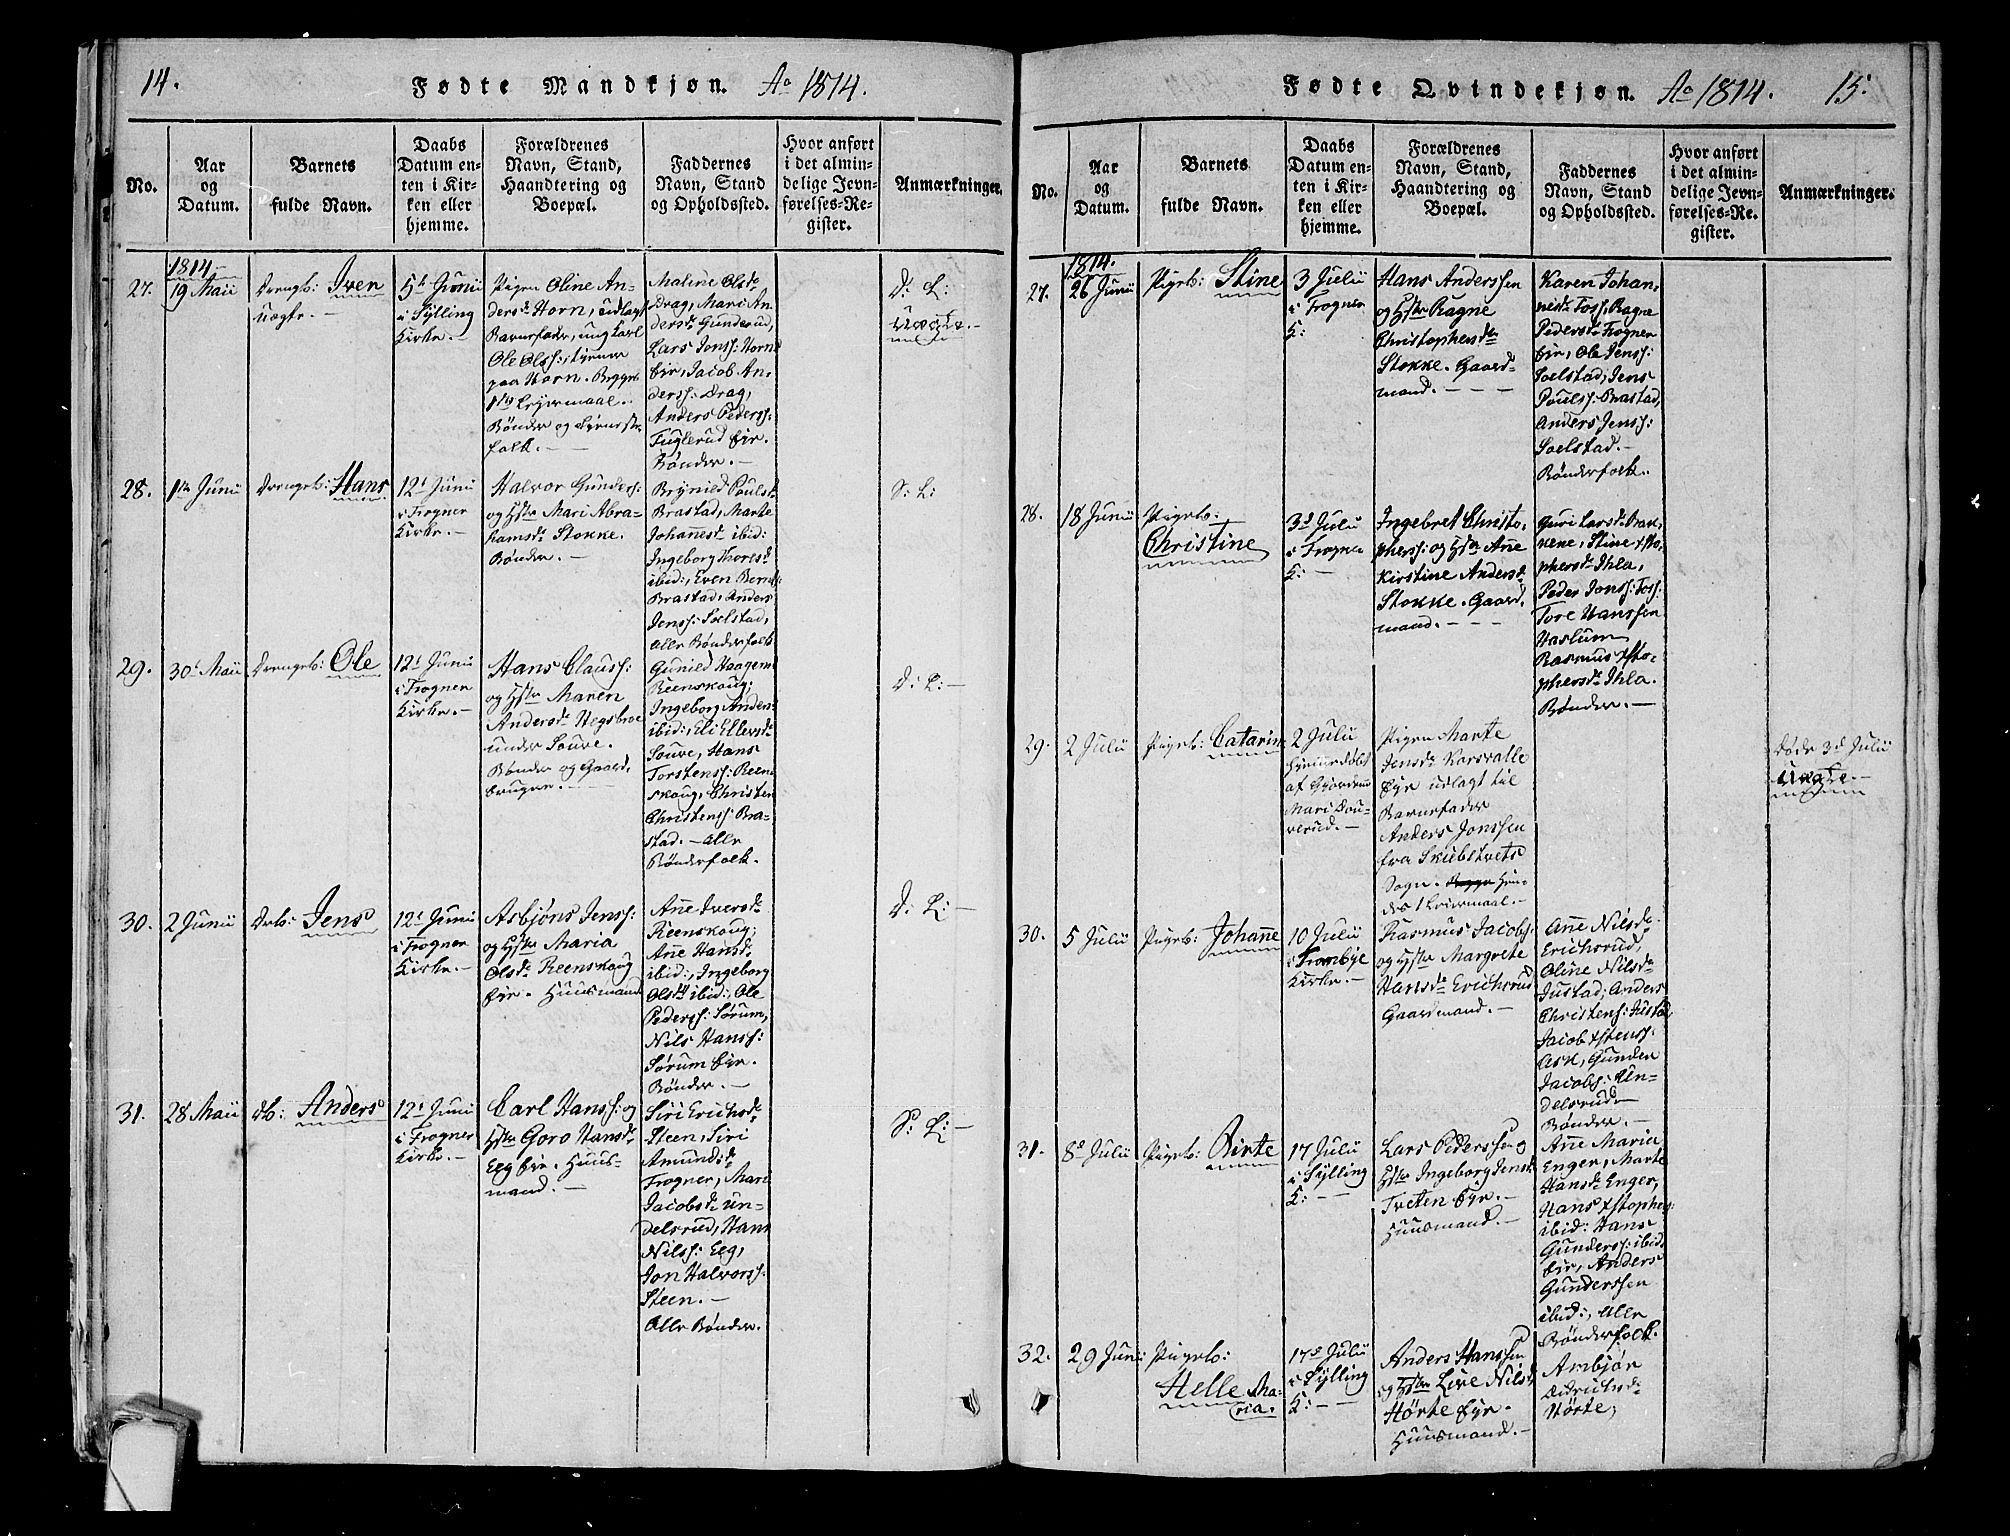 14.
Fødte Mandkjøn. Ao 1814.
No.
Aar
og
Datum.
Barnets
fulde Navn.
Daabs
Datum en-
ten i Kir-
ken eller
hjemme.
Forældrenes
Navn, Stand,
Haandtering og
Boepæl.
Faddernes
Navn, Stand
og Opholdssted.
Hvor anført
i det almin-
delige Jevn-
førelses-Re-
gister.
Anmærkninger.
27.
1814
19 Maii
Drengeb: Iven
uægte. -
5te Junii
i Sylling
Kirke. -
Pigen Oline An-
dersdr Horn, udlagt
Barnefader, ung karl
Ole Olss: tjener
paa Horn. Begges
1ste Leiermaal.
Bønder og Tjeneste
folk. -
Maline Olsdr
Drag, Mari An-
dersdr Gunderud,
Lars Jenss: Horn
Eir, Jacob An-
derss: Drag,
Anders Pederss:
Fuglerud Eir.
Bønder. -
D: L:
Uægte. -
28.
1te Junii
Drengeb: Hans
12t Junii
i Frogner
Kirke. -
Halvor Gunders:
og Hstr Mari Abra-
hamsdr Stokke.
Bønder. -
Brynild Poulsdr
Brastad, Marte
Johannesd ibid:
Ingeborg Thorlsd
ibid:, Even Bernts:
Brastad, Anders
Jenss: Soelstad,
alle Bønderfolk
S: L:
29.
30t Maii
Drengeb: Ole
12t Junii
i Frogner
Kirke. -
Hans Clauss:
og Hstr Maren
Andersdr Hegsbroe
under Souve.
Bønder og Gaard-
bruger. -
Gunild Haagens
Reenskoug,
Ingeborg Anders
ibid:, Eli Ellersdr
Souve, Hans
Torstenss: Reen-
skoug, Christen
Christenss: Bra-
stad. - alle
Bønderfolk.
D: L: -
30.
2 Junii
Drb: Jens
12t Junii
i Frogner
Kirke. -
Asbjøns Jenss:
og Hstr Maria
Olsdr Reenskoug
Eir. Huusmand
Ane Iversdr
Reenskoug,
Ane Hansd:
ibid:, Ingeborg
Olsdr ibid:, Ole
Pederss: Sørum,
Nils Hanss:
Sørum Eir.
Bønder. -
D: L: -
31.
28 Maii
Db: Anders
12t Junii
i Frogner
Kirke. -
Carl Hanss: og
Hstr Goro Hansdr
Elg Eir. Huus-
mand. -
Siri Erichsdr
Steen, Siri
Amundsdr
Frogner, Mari
Jacobsdr Un-
delsrud, Hans
Nilss: Elg,
Jon Halvorss:
Steen. -
Alle Bønder.
S: L: -
Fødte Qvindekjøn. Ao 1814.
15.
No.
Aar
og
Datum.
Barnets
fulde Navn.
Daabs
Datum en-
ten i Kir-
ken eller
hjemme.
Forældrenes
Navn, Stand,
Haandtering og
Boepæl.
Faddernes
Navn, Stand
og Opholdssted.
Hvor anført
i det almin-
delige Jevn-
førelses-Re-
gister.
Anmærkninger.
27.
1814.
26 Junii
Pigeb: Stine
3 Julii
i Frogner
K:
Hans Anderssen
og Hstr Ragne
Christophersdr
Stokke. Gaard-
mand. - - -
Karen Johan-
nesdr Foss, Ragne
Pedersdr Frogner
Eir, Ole Jenss:
Soelstad, Jens
Poulss: Brastad,
Anders Jenss:
Soelstad. -
Bønderfolk.
28.
18 Junii
Pigeb:
Christine
3d Julii
i Frogner
K: -
Ingebret Christo-
pherss: og Hstr Ane
Kirstine Andersdr
Stokke. Gaard-
mand. - - -
Guri Larsdr Bak-
kene, Stine Xsto-
phersdr Ihla,
Peder Jonss: Foss:
Tore Hanssen
Haslum,
Rasmus Xsto-
phersdr Ihla.
Bønder. -
29.
2 Julii
Pigeb: Catarine
2 Julii
Hjemmedøbt
af Gjordemo
Mari Dou-
verud. -
Pigen Marte
Jensdr Korsvalle
Eje udlagt til
Barnefader
Anders Jonssen
fra Skibstvets
Sogn. Begge Hen-
des 1 Leiermaal. -
Døde 3d Julii
Uægte. -
30.
5 Julii
Pigeb: Johanne
10 Julii
i Tranbye
Kirke. -
Rasmus Jacobs:
og Hstr Margrete
Hansdr Erichsrud
Gaardmand. -
Ane Nilsdr
Erichsrud,
Oline Nilsdr
Justad, Anders
Christens: Justad
Jacob Xstenss:
Ask, Gunder
Jacobs: Un-
delsrud
Bønder. -
31.
8d Julii
Pigeb: Birte
17 Julii
i Sylling
K: - -
Lars Pederssen og
Hstr Ingeborg Jensdr
Tveten Eje. -
Huusmand. -
Ane Maria
Enger, Marte
Hansdr Enger,
Hans Xstophers:
ibid: Hans
Gunderss: ibid:
Eir, Anders
Gunderssen
ibid:, alle
Bønderfolk.
32.
29 Junii
Pigeb:
Helle Ma-
ria.
17d Julii
i Sylling
K: - -
Anders Hanssen
og Hstr Live Nilsdr
Hørte Eje.
Huusmand. -
Ambjør
Didrichsdr
Hørte,